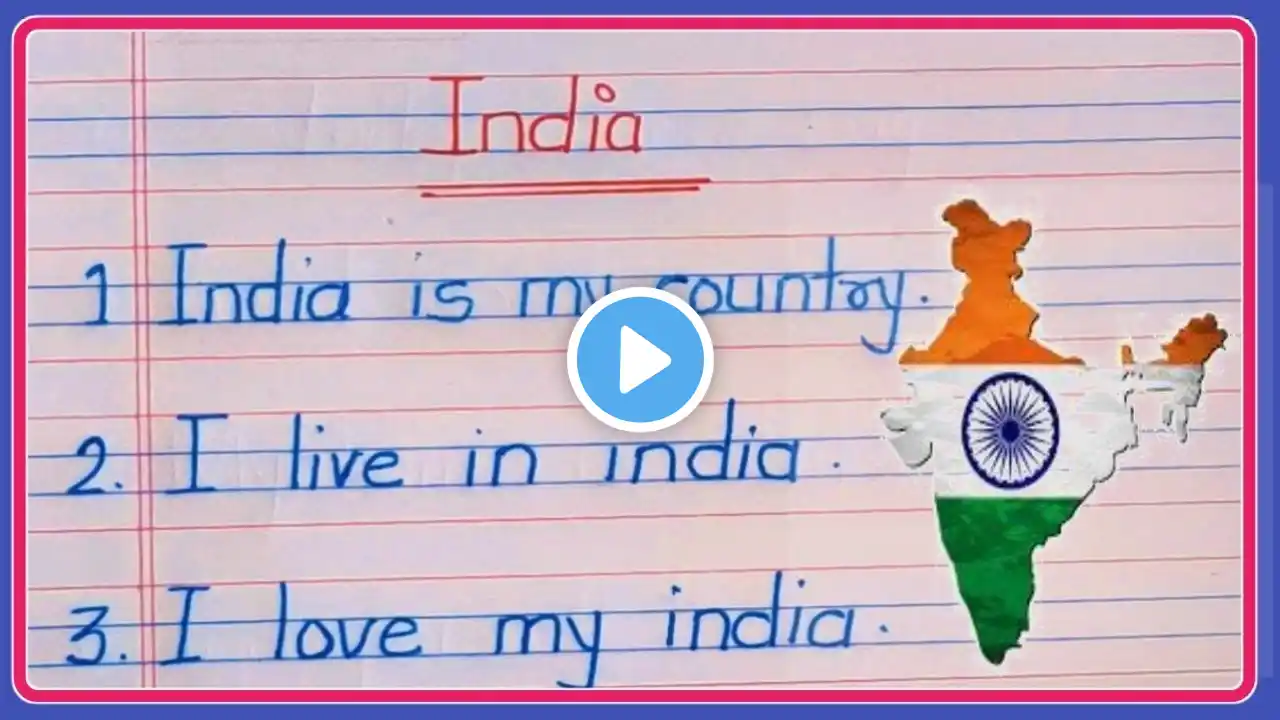 India
1 India is my country.
2. I live in india.
3. I love my india.